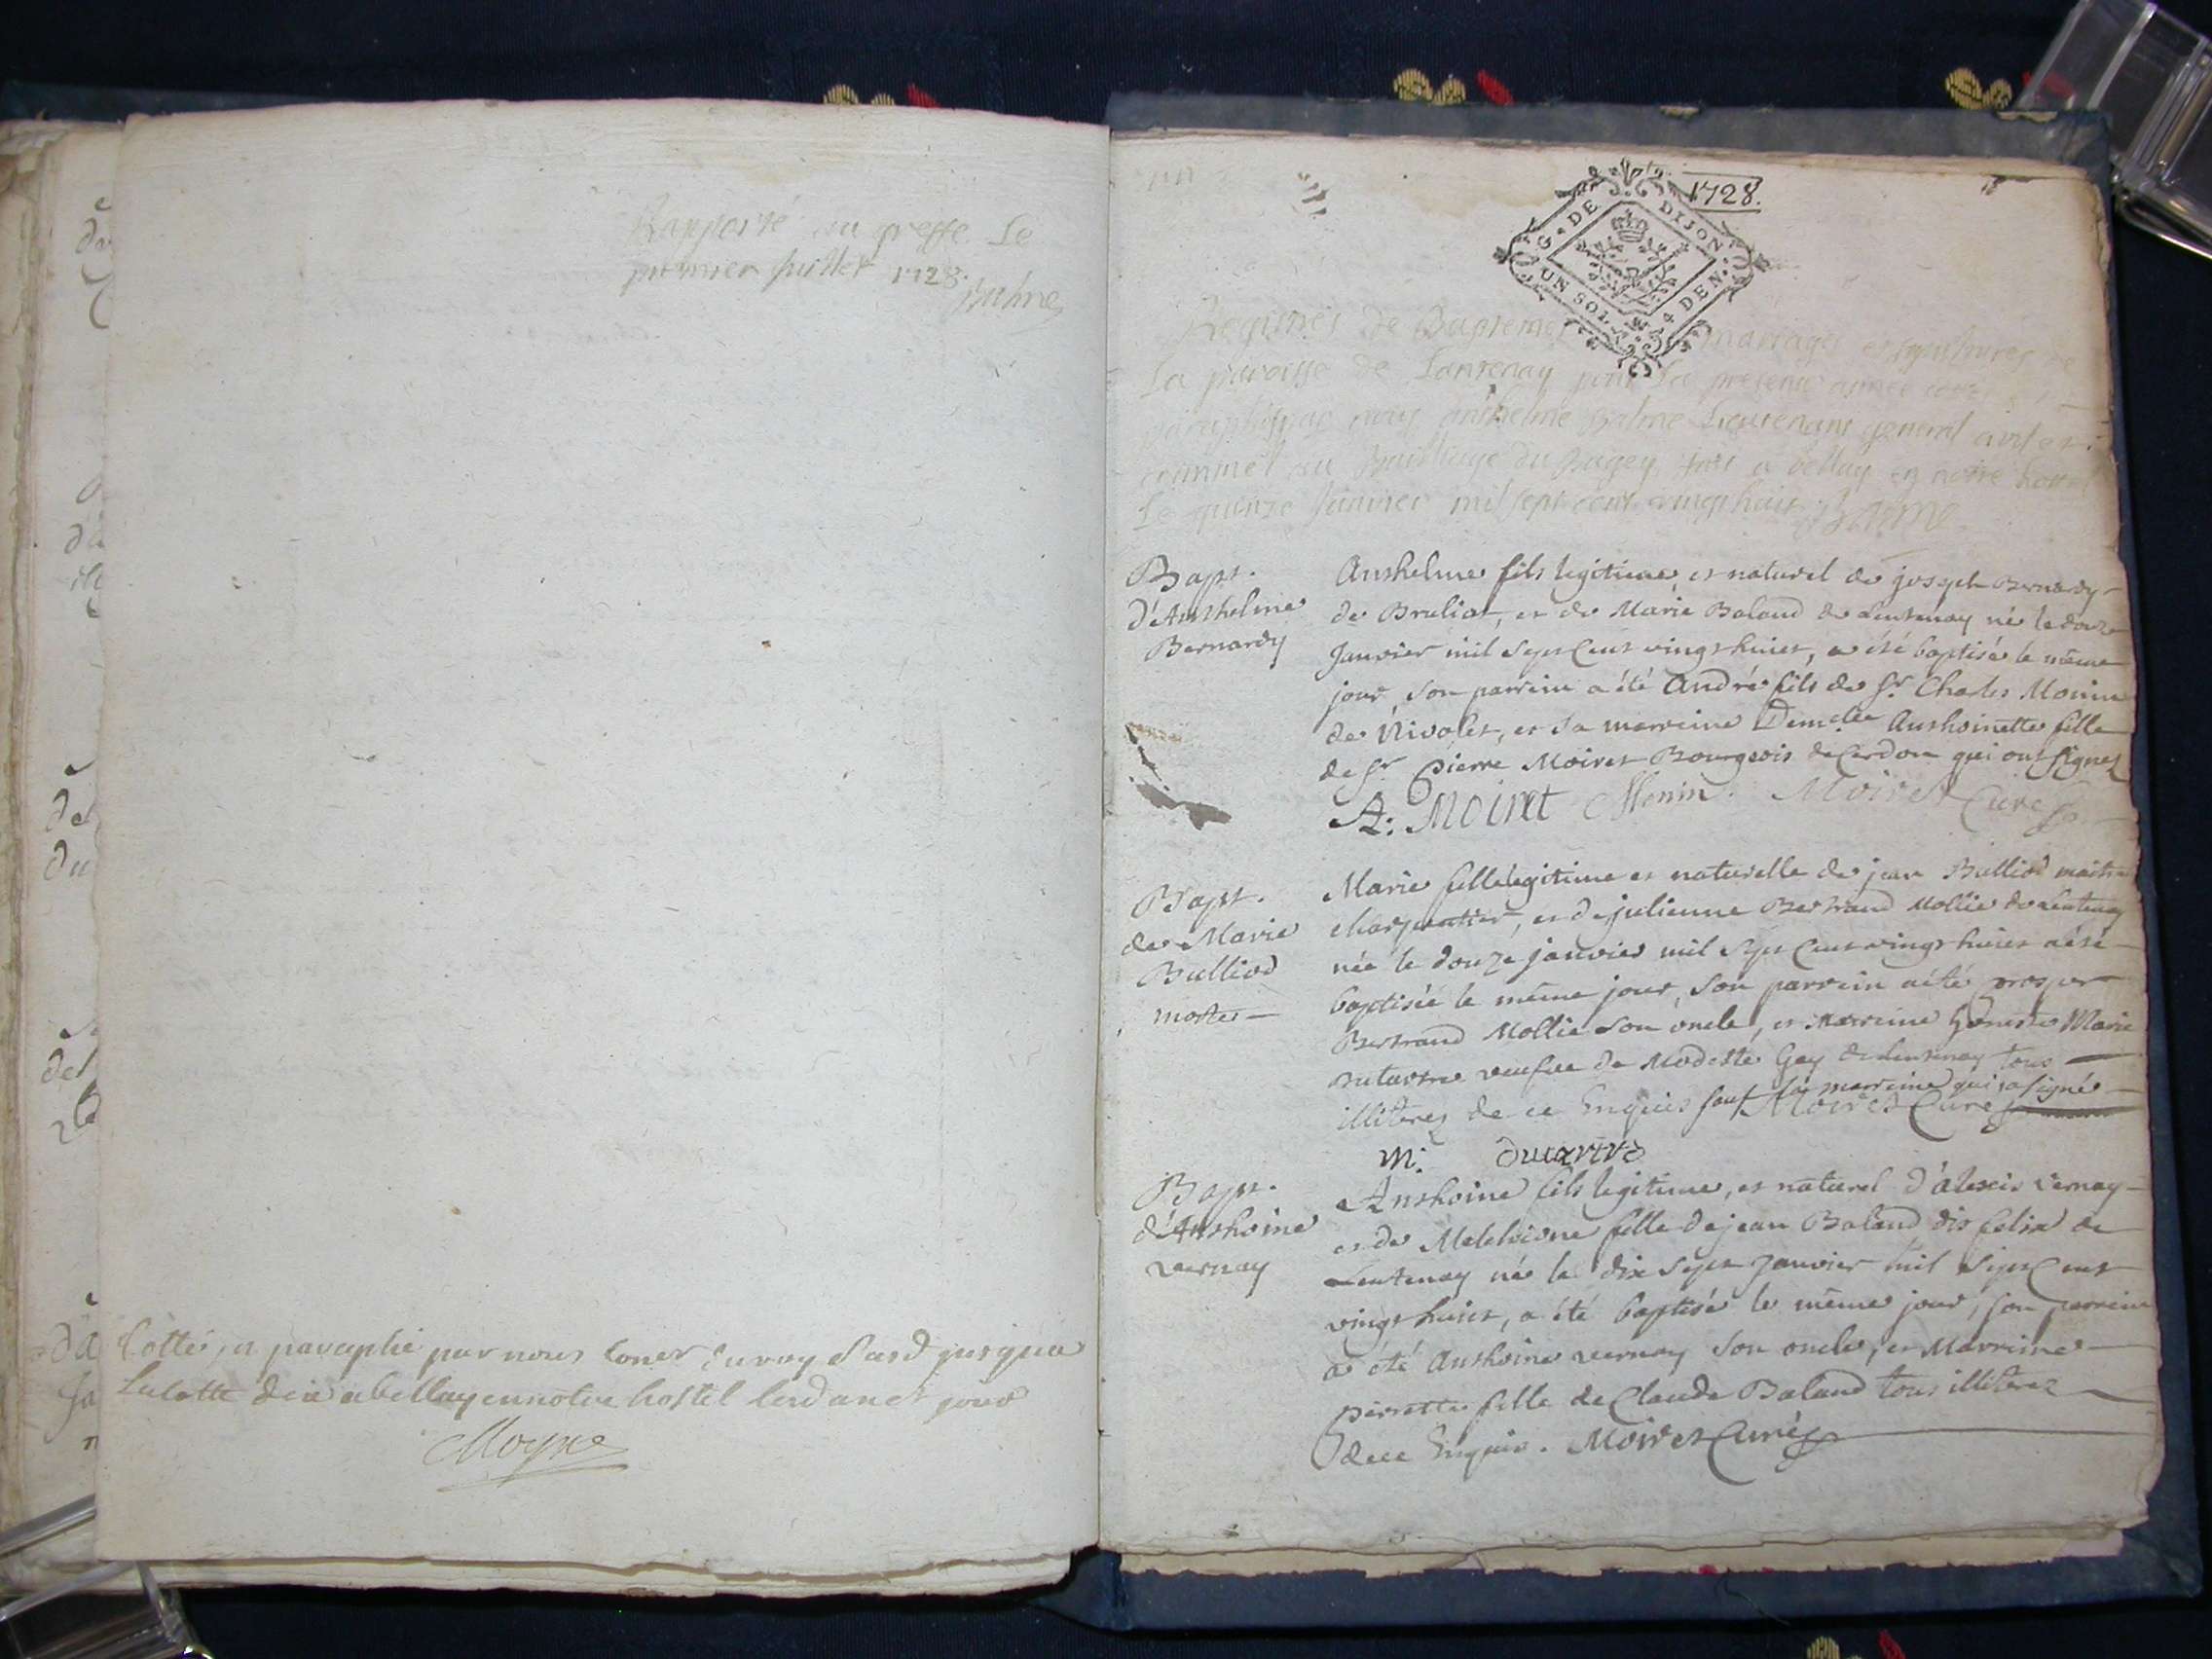 Rapporté au greffe Le
premier juillet 1728.
Balme
Cotté, et paraphé par nous
la cotte dix a bellay en notre hostel
Moyne
1728.
G. DE DIJON
UN SOL 4 DEN.
Registre de Baptemes mariages et sepultures de
La paroisse de Lantenay pour la presente année
paraphé par nous Anthelme Balme Lieutenant general civil et
criminel au Bailliage du Bugey fait a Bellay en notre hotel
Le quinze Janvier mil sept cent vingt huit Balme
Bapt.
d'Anthelme
Bernardy
Anthelme fils legitime, et naturel de joseph Bernardy
de Bruliat, et de Marie Baland de Lentenay né le douze
Janvier mil sept cent vingt huict, a été baptisé le même
jour, son parrein a été André fils de Sr. Charles Monin
de Nivolet, et sa marreine Demelle Anthoinette fille
de Sr. Pierre Moiret Bourgeois de Cerdon qui ont signez
A. Moiret Monin. Moiret Curé
Bapt.
de Marie
Bulliod
morte
Marie fille legitime et naturelle de jean Bulliod maitre
charpentier, et de julienne Bertrand Mollie de Lentenay
née le douze janvier mil sept cent vingt huict a été
baptisée le même jour, son parrein a été prosper
Bertrand Mollie son oncle, et Marreine honeste Marie
veufue de Modeste Gay de Lentenay tous
illiterez de ce Enquis sauf la marreine qui a signé
Moiret Curé
M.
Bapt.
d'Anthoine
vernay
Anthoine fils legitime, et naturel d'alexis vernay
et de Melchione fille de jean Baland dit felix de
Lentenay né le dix sept Janvier mil sept Cent
vingt huict, a été baptisé le même jour, son parrein
a été Anthoine vernay son oncle, et Marreine
pierrette fille de Claude Baland tous illiterez
de ce Enquis. Moiret Curé